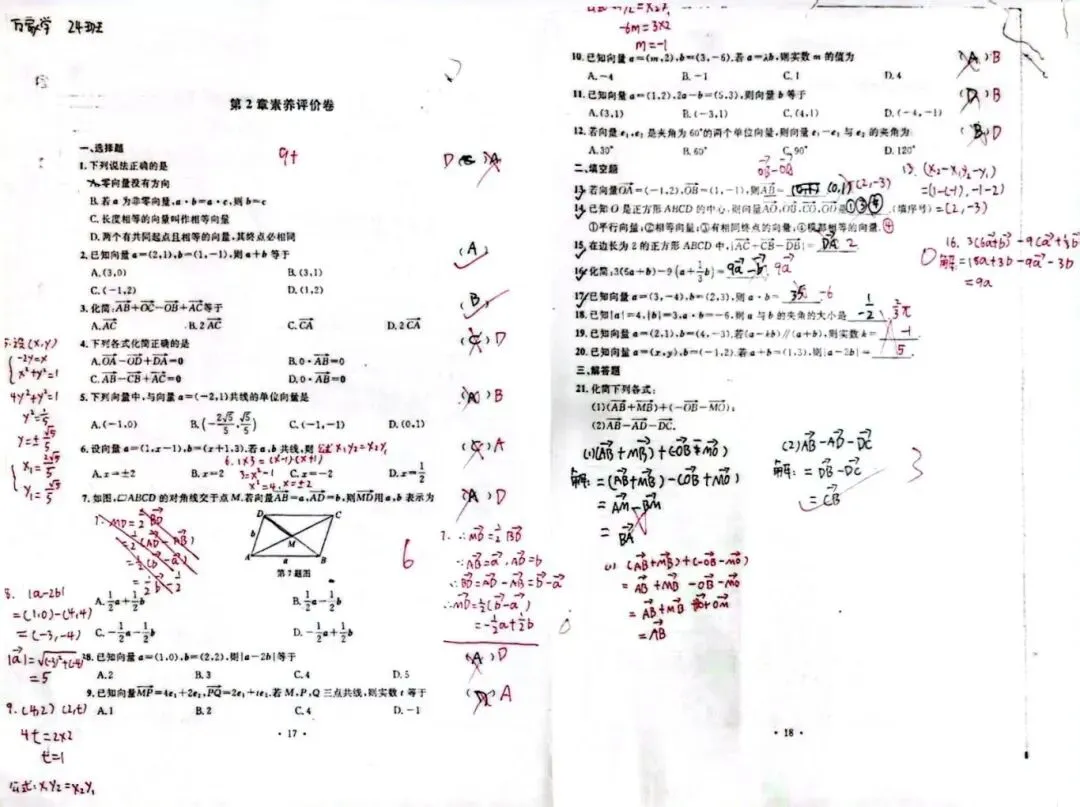 24班
第2章素养评价卷
9+
一、选择题
1.下列说法正确的是 D (A)
A.零向量没有方向
B.若a为非零向量,a·b=a·c,则b=c
C.长度相等的向量叫作相等向量
D.两个有共同起点且相等的向量,其终点必相同
2.已知向量a=(2,1),b=(1,-1),则a+b等于 (A)
A.(3,0) B.(3,1)
C.(-1,2) D.(1,2)
3.化简:AB+OC-OB+AC等于 (B)
A.AC B.2AC C.CA D.2CA
4.下列各式化简正确的是 (C) D
A.OA-OD+DA=0 B.0·AB=0
C.AB-CB+AC=0 D.0·AB=0
5.设(x,y)
-2y=x
x²+y²=1
4y²+y²=1
y²=1/5
y=±√5/5
x₁=2√5/5
y₁=√5/5
5.下列向量中,与向量a=(-2,1)共线的单位向量是 (A) B
A.(-1,0) B.(-2√5/5,√5/5) C.(-1,-1) D.(0,1)
6.设向量a=(1,x-1),b=(x+1,3).若a,b共线,则 公式x₁y₂=x₂y₁ (C) A
6.1×3=(x-1)(x+1)
3=x²-1
x²=4,x=±2
A.x=±2 B.x=2 C.x=-2 D.x=1/2
7.如图,▱ABCD的对角线交于点M.若向量AB=a,AD=b,则MD用a,b表示为 (A) D
D C
b M
A a B
第7题图
6
7.∵MD=1/2BD
∵AB=a,AD=b
∴BD=AD-AB=b-a
∴MD=1/2(b-a)
=-1/2a+1/2b
A.1/2a+1/2b B.1/2a-1/2b
C.-1/2a-1/2b D.-1/2a+1/2b
8. |a-2b|
=(1,0)-(4,4)
=(-3,-4)
|a|=√(-3)²+(-4)
=5
8.已知向量a=(1,0),b=(2,2),则|a-2b|等于 (A) D
A.2 B.3 C.4 D.5
9.已知向量MP=4e₁+2e₂,PQ=2e₁+te₂.若M,P,Q三点共线,则实数t等于 A
A.1 B.2 C.4 D.-1
9.(4,2) (2,t)
4t=2×2
t=1
公式:x₁y₂=x₂y₁
·17·
-6m=3×2
m=-1
10.已知向量a=(m,2),b=(3,-6).若a=λb,则实数m的值为 (A) B
A.-4 B.-1 C.1 D.4
11.已知向量a=(1,2),2a-b=(5,3),则向量b等于 (D) B
A.(3,1) B.(-3,1) C.(4,1) D.(-4,-1)
12.若向量e₁,e₂是夹角为60°的两个单位向量,则向量e₁-e₂与e₂的夹角为 (B) D
A.30° B.60° C.90° D.120°
二、填空题
OB-OB
13.若向量OA=(-1,2),OB=(1,-1),则AB= (0,1) (2,-3)
13. (x₂-x₁,y₂-y₁)
=(1-(-1),-1-2)
=(2,-3)
14.已知O是正方形ABCD的中心,则向量AO,OB,CO,OD是①③④.(填序号)
①平行向量;②相等向量;③有相同终点的向量;④模都相等的向量. ④
15.在边长为2的正方形ABCD中,|AC+CB-DB|= DA 2
16.化简:3(6a+b)-9(a+1/3b)= 9a-b 9a
16. 3(6a+b)-9(a+1/3b)
解:=18a+3b-9a-3b
=9a
17.已知向量a=(3,-4),b=(2,3),则a·b= -6
18.已知|a|=4,|b|=3,a·b=-6,则a与b的夹角的大小是 -1/2 2/3π
19.已知向量a=(2,1),b=(4,-3).若(a-kb)∥(a+b),则实数k= -1
20.已知向量a=(x,y),b=(-1,2).若a+b=(1,3),则|a-2b|= 5.
三、解答题
21.化简下列各式:
(1)(AB+MB)+(-OB-MO);
(2)AB-AD-DC.
(1)(AB+MB)+(-OB-MO)
解:=(AB+MB)-(OB+MO)
=AM-BM
=BA
(1) (AB+MB)+(-OB-MO)
=AB+MB-OB-MO
=AB+MB+BO+OM
=AB
(2)AB-AD-DC
解:=DB-DC
=CB
3
·18·